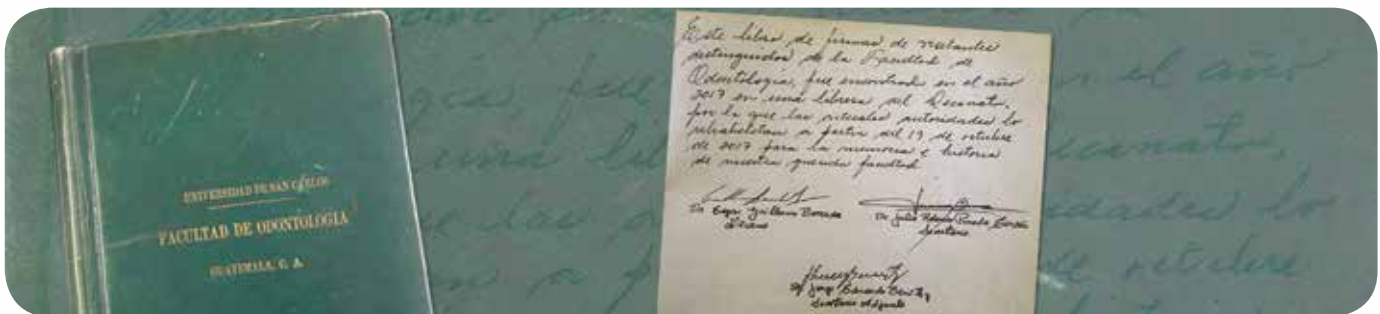 UNIVERSIDAD DE SAN CARLOS
FACULTAD DE ODONTOLOGIA
GUATEMALA, C. A.
Este libro de firmas de visitantes
distinguidos de la Facultad de
Odontología, fue encontrado en el año
2017 en una librera del Decanato,
por lo que las actuales autoridades lo
rehabilitan a partir del 19 de octubre
de 2017 para la memoria e historia
de nuestra querida facultad
Dr. Edgar Guillermo Barreda
Decano
Dr. Julio Pineda Cordón
Secretario
Dr. Jorge Benítez
Secretario Adjunto